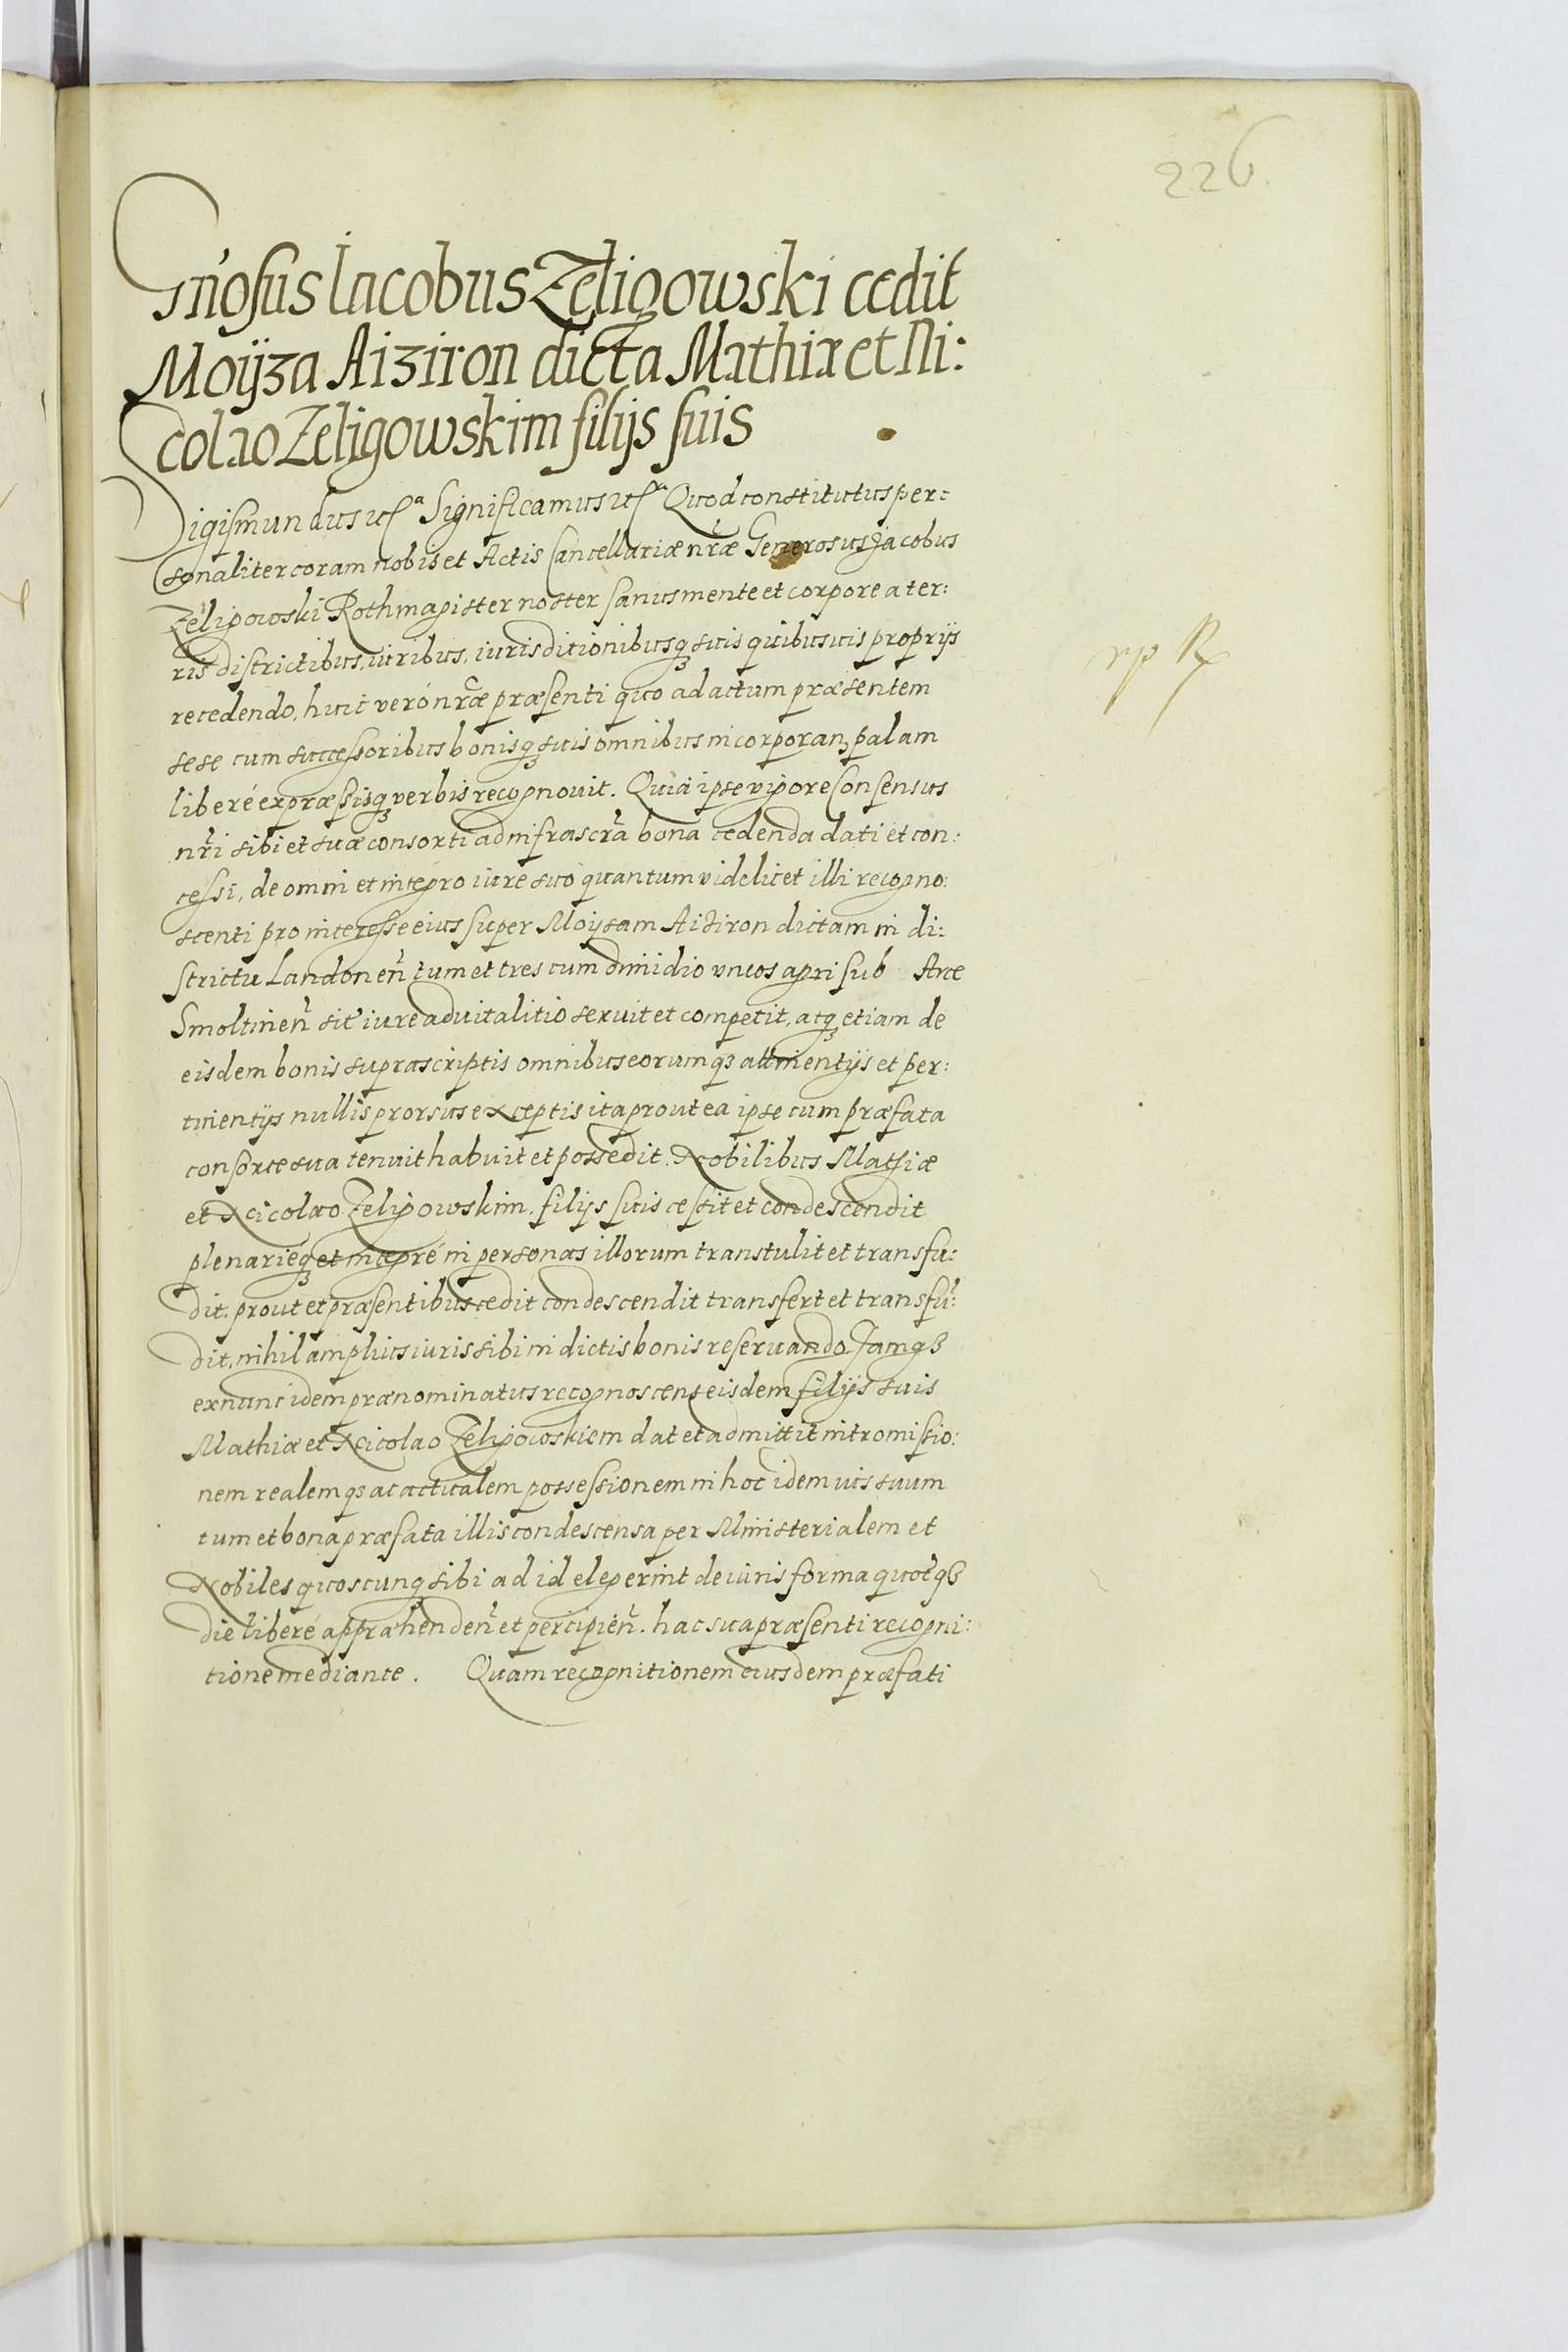 226.
Gn̄osus Iacobus Zeligowski cedit
Moÿza Aiziron dicta Mathiæ et Ni:
colao Zeligowskim filijs suis
Sigismundus etc̃a Significamus etc̃ Quod constitutus per:
sonaliter coram nobis et Actis Cancellariæ nr̃æ Generosus Jacobus
Zeligowski Rothmagister noster sanus mente et corpore a ter:
ris districtibus, iuribus, iurisditionibusq3 suis quibusuis proprijs
recedendo, huic veró nr̃æ præsenti quo ad actum præsentem
sese cum successoribus bonisq3 suis omnibus incorporan3 palam
liberé expræssisq3 verbis recognouit. Quia ipse vigore Consensus
nr̃i sibi et suæ consorti ad infrascr̃a bona cedenda dati et con:
cessi, de omni et integro iure suo quantum videlicet illi recogno:
scenti pro interesse eius super Moysam Aiziron dictam in di:
strictu Landonen̄ tum et tres cum dimidio uncos agri sub Arce
Smoltinen̄ sit' iure aduitalitio seruit et competit, atq3 etiam de
eisdem bonis suprascriptis omnibus eorumq3 attinentijs et per:
tinentijs nullis prorsus exceptis ita prout ea ipse cum præfata
consorte sua tenuit habuit et possedit. Nobilibus Mathiæ
et Nicolao Zeligowskim. filijs suis cessit et condescendit
plenarieq3 et integré in personas illorum transtulit et transfu:
dit. prout et præsentibus cedit condescendit transfert et transfu:
dit, nihil amplius iuris sibi in dictis bonis reseruando. Jamq3
ex nunc idem prænominatus recognoscens eisdem filijs suis
Mathiæ et Nicolao Zeligowskiem dat et admittit intromissio:
nem realemq3 ac actualem possessionem in hoc idem ius suum
tum et bona præfata illis condescensa per Ministerialem et
Nobiles quoscunq3 sibi ad id elegerint de iuris forma quot'q3
die liberé appræhenden̄ et percipien̄. hac sua præsenti recogni:
tione mediante. Quam recognitionem eiusdem præfati